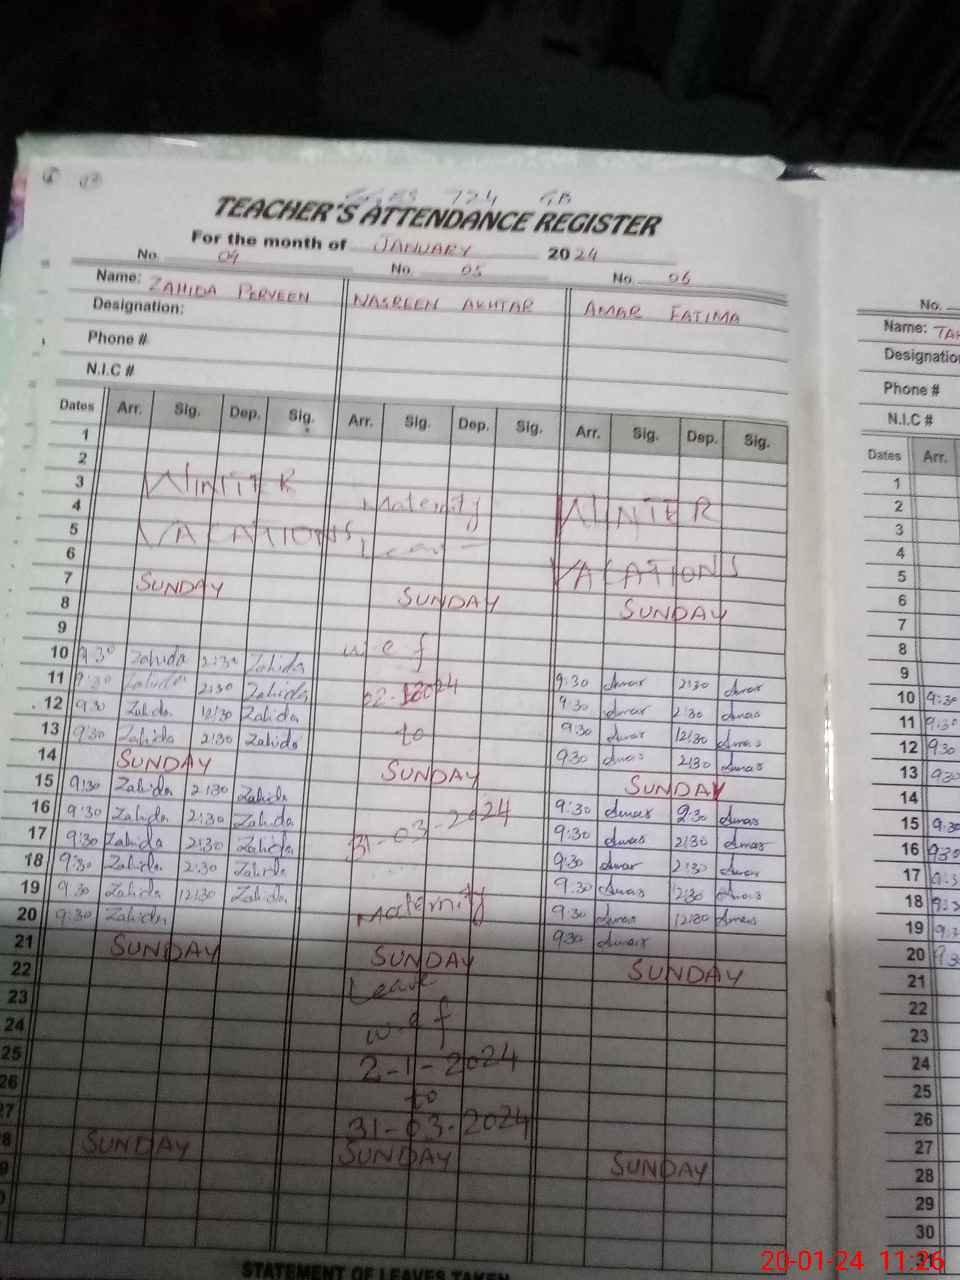 724 GB
TEACHER'S ATTENDANCE REGISTER
For the month of JANUARY 2024
No. 04 No. 05 No. 06
Name: ZAHIDA PERVEEN NASREEN AKHTAR AMAR FATIMA
Designation:
Phone #
N.I.C #
Dates Arr. Sig. Dep. Sig. Arr. Sig. Dep. Sig. Arr. Sig. Dep. Sig.
1
2
3 WINTER
4 Maternity WINTER
5 VACATIONS
6 Leave VACATIONS
7 SUNDAY SUNDAY SUNDAY
8
9 w e f
10 9:30 Zahida 2:30 Zahida 9:30 Amar 2:30 Amar
11 9:30 Zahida 2:30 Zahida 9:30 Amar 2:30 Amar
12 9:30 Zahida 12:30 Zahida to 9:30 Amar 12:30 Amar
13 9:30 Zahida 2:30 Zahida 9:30 Amar 2:30 Amar
14 SUNDAY SUNDAY SUNDAY
15 9:30 Zahida 2:30 Zahida 9:30 Amar 2:30 Amar
16 9:30 Zahida 2:30 Zahida 31-03-2024 9:30 Amar 2:30 Amar
17 9:30 Zahida 2:30 Zahida 9:30 Amar 2:30 Amar
18 9:30 Zahida 2:30 Zahida 9:30 Amar 2:30 Amar
19 9:30 Zahida 12:30 Zahida Maternity 9:30 Amar 12:30 Amar
20 9:30 Zahida 9:30 Amar
21 SUNDAY SUNDAY SUNDAY
22 Leave
23 w e f
24
25 2-1-2024
26 to
27 31-03-2024
28 SUNDAY SUNDAY SUNDAY
STATEMENT OF LEAVES TAKEN
No.
Name:
Designation
Phone #
N.I.C #
Dates Arr.
1
2
3
4
5
6
7
8
9
10 9:30
11 9:30
12 9:30
13 9:30
14
15 9:30
16 9:30
17
18
19
20
21
22
23
24
25
26
27
28
29
30
31
20-01-24 11:26